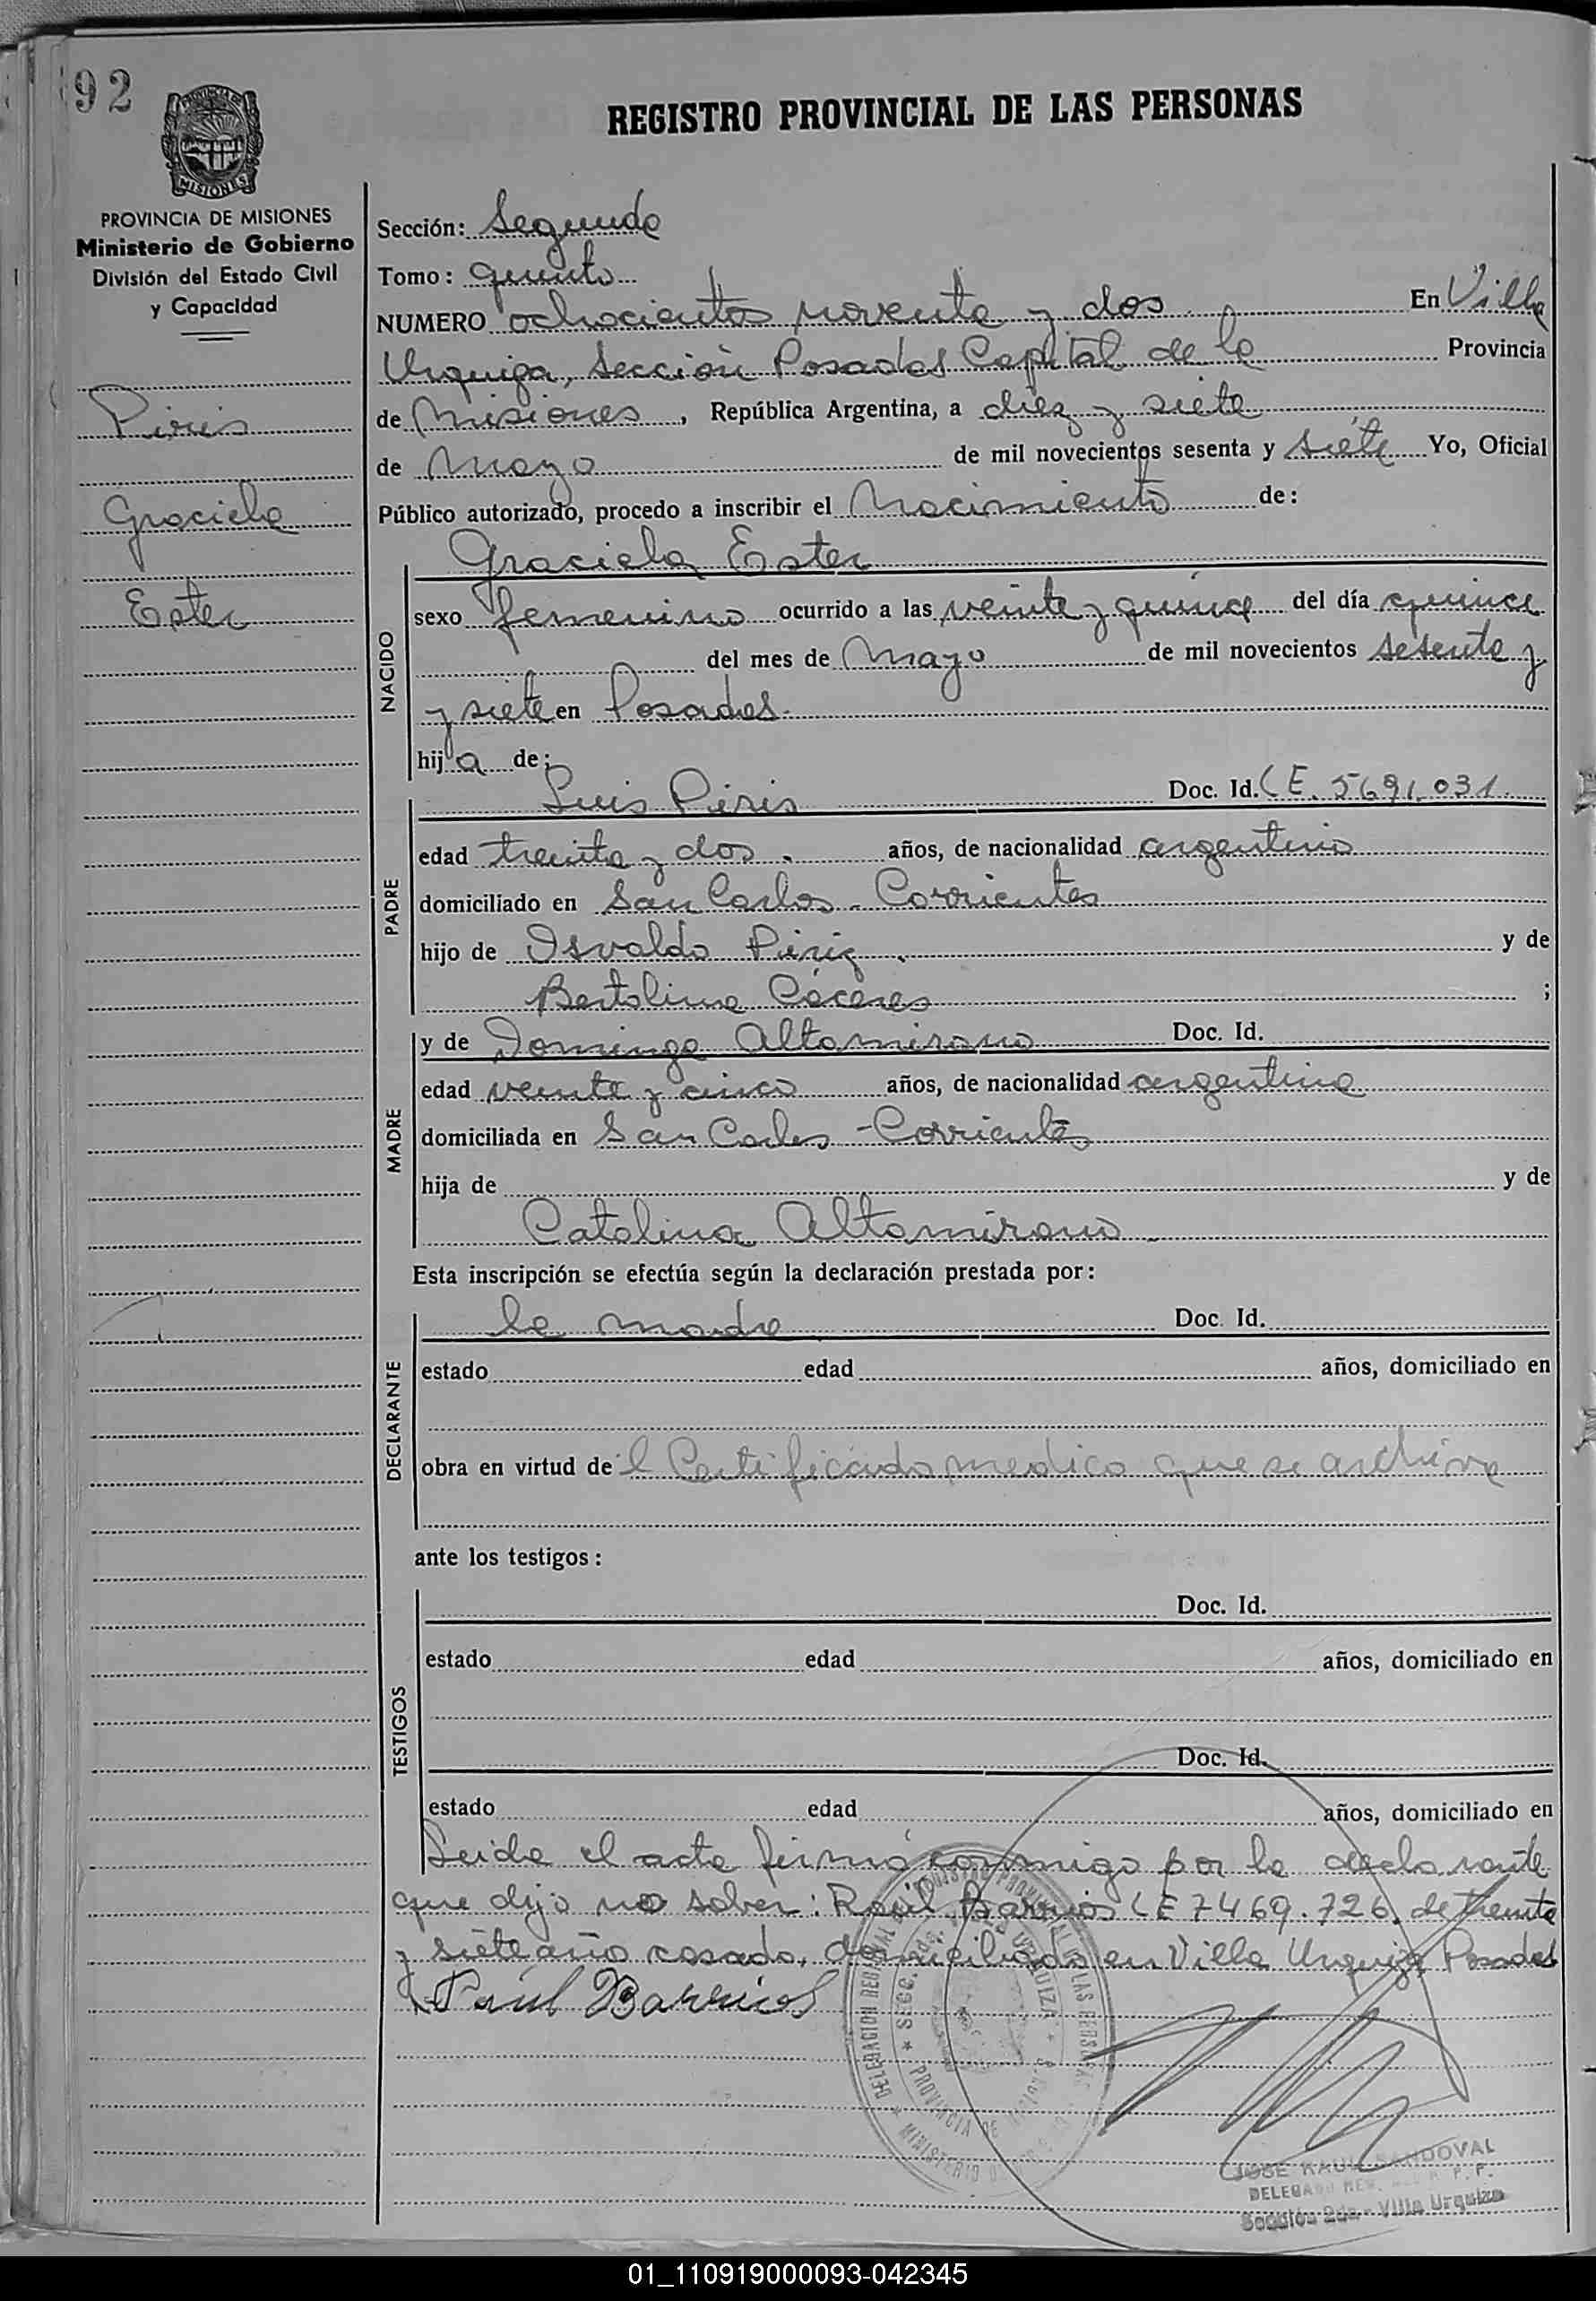 92
PROVINCIA DE
MISIONES
REGISTRO PROVINCIAL DE LAS PERSONAS
PROVINCIA DE MISIONES
Ministerio de Gobierno
División del Estado Civil
y Capacidad
Piris
Graciela
Ester
Sección: Segunda
Tomo: quinto
NUMERO ochocientos noventa y dos En Villa
Urquiza, Sección Posadas Capital de la Provincia
de Misiones, República Argentina, a diez y siete
de Mayo de mil novecientos sesenta y siete Yo, Oficial
Público autorizado, procedo a inscribir el Nacimiento de:
NACIDO
Graciela Ester
sexo femenino ocurrido a las veinte y quince del día quince
del mes de Mayo de mil novecientos sesenta y
y siete en Posadas.
hija de:
PADRE
Luis Piris Doc. Id. LE. 5691.031
edad treinta y dos. años, de nacionalidad argentino
domiciliado en San Carlos - Corrientes
hijo de Osvaldo Piriz y de
Bertolina Cáceres ;
MADRE
y de Dominga Altamirano Doc. Id.
edad veinte y cinco años, de nacionalidad argentina
domiciliada en San Carlos - Corrientes
hija de y de
Catalina Altamirano
Esta inscripción se efectúa según la declaración prestada por:
DECLARANTE
la madre Doc. Id.
estado edad años, domiciliado en
obra en virtud de l Certificado medico que se archiva
ante los testigos:
TESTIGOS
Doc. Id.
estado edad años, domiciliado en
Doc. Id.
estado edad años, domiciliado en
Leida el acta firmó conmigo por la declarante
que dijo no saber: Raúl Barrios LE 7469.726, de treinta
y siete año casado, domiciliado en Villa Urquiza Posadas
Raúl Barrios
JOSE RAUL SANDOVAL
Sección 2da - Villa Urquiza
01_110919000093-042345